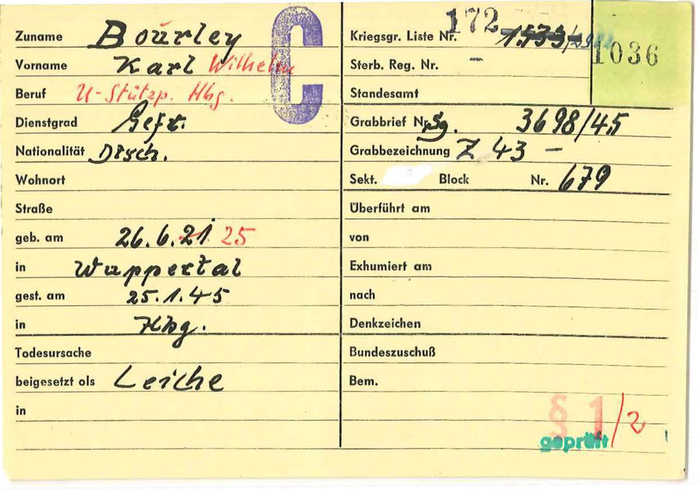 Zuname Bourley
Vorname Karl Wilhelm
Beruf U-Stützp. Hbg.
Dienstgrad Gefr.
Nationalität Dtsch.
Wohnort
Straße
geb. am 26.6.21 25
in Wuppertal
gest. am 25.1.45
in Hbg.
Todesursache
beigesetzt als Leiche
in
C
Kriegsgr. Liste Nr. 172 1533
1036
Sterb. Reg. Nr. –
Standesamt
Grabbrief Nr. Sg. 3698/45
Grabbezeichnung Z 43 –
Sekt. Block Nr. 679
Überführt am
von
Exhumiert am
nach
Denkzeichen
Bundeszuschuß
Bem.
§ 1/2
geprüft